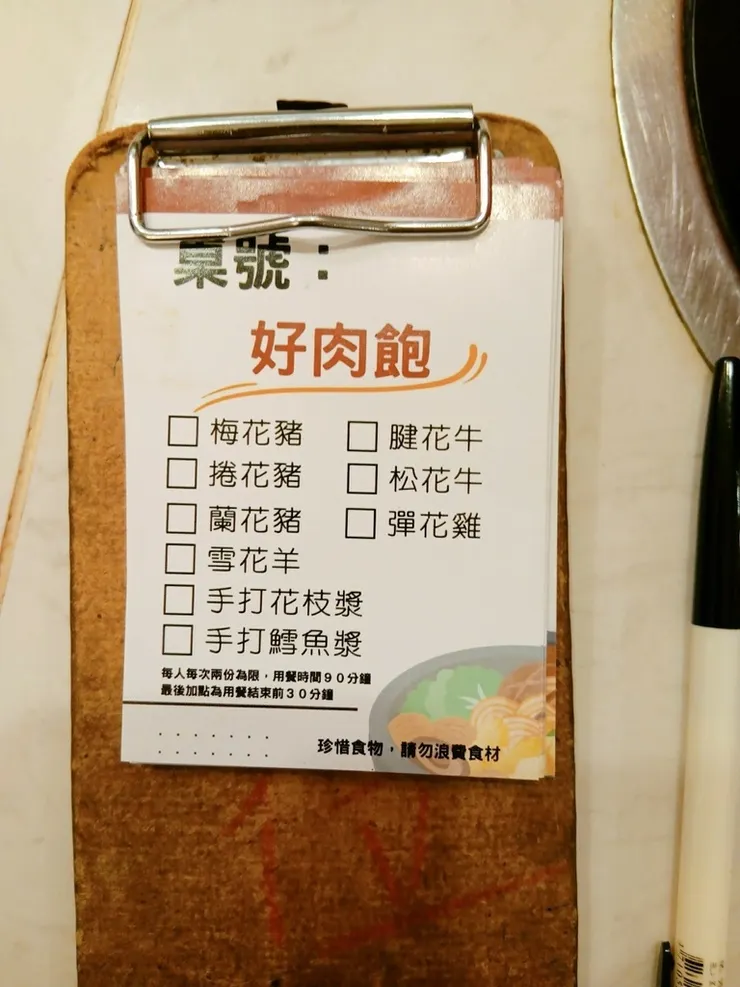 桌號：
好肉飽
□ 梅花豬 □ 腱花牛
□ 捲花豬 □ 松花牛
□ 蘭花豬 □ 彈花雞
□ 雪花羊
□ 手打花枝漿
□ 手打鱈魚漿
每人每次兩份為限，用餐時間90分鐘
最後加點為用餐結束前30分鐘
珍惜食物，請勿浪費食材